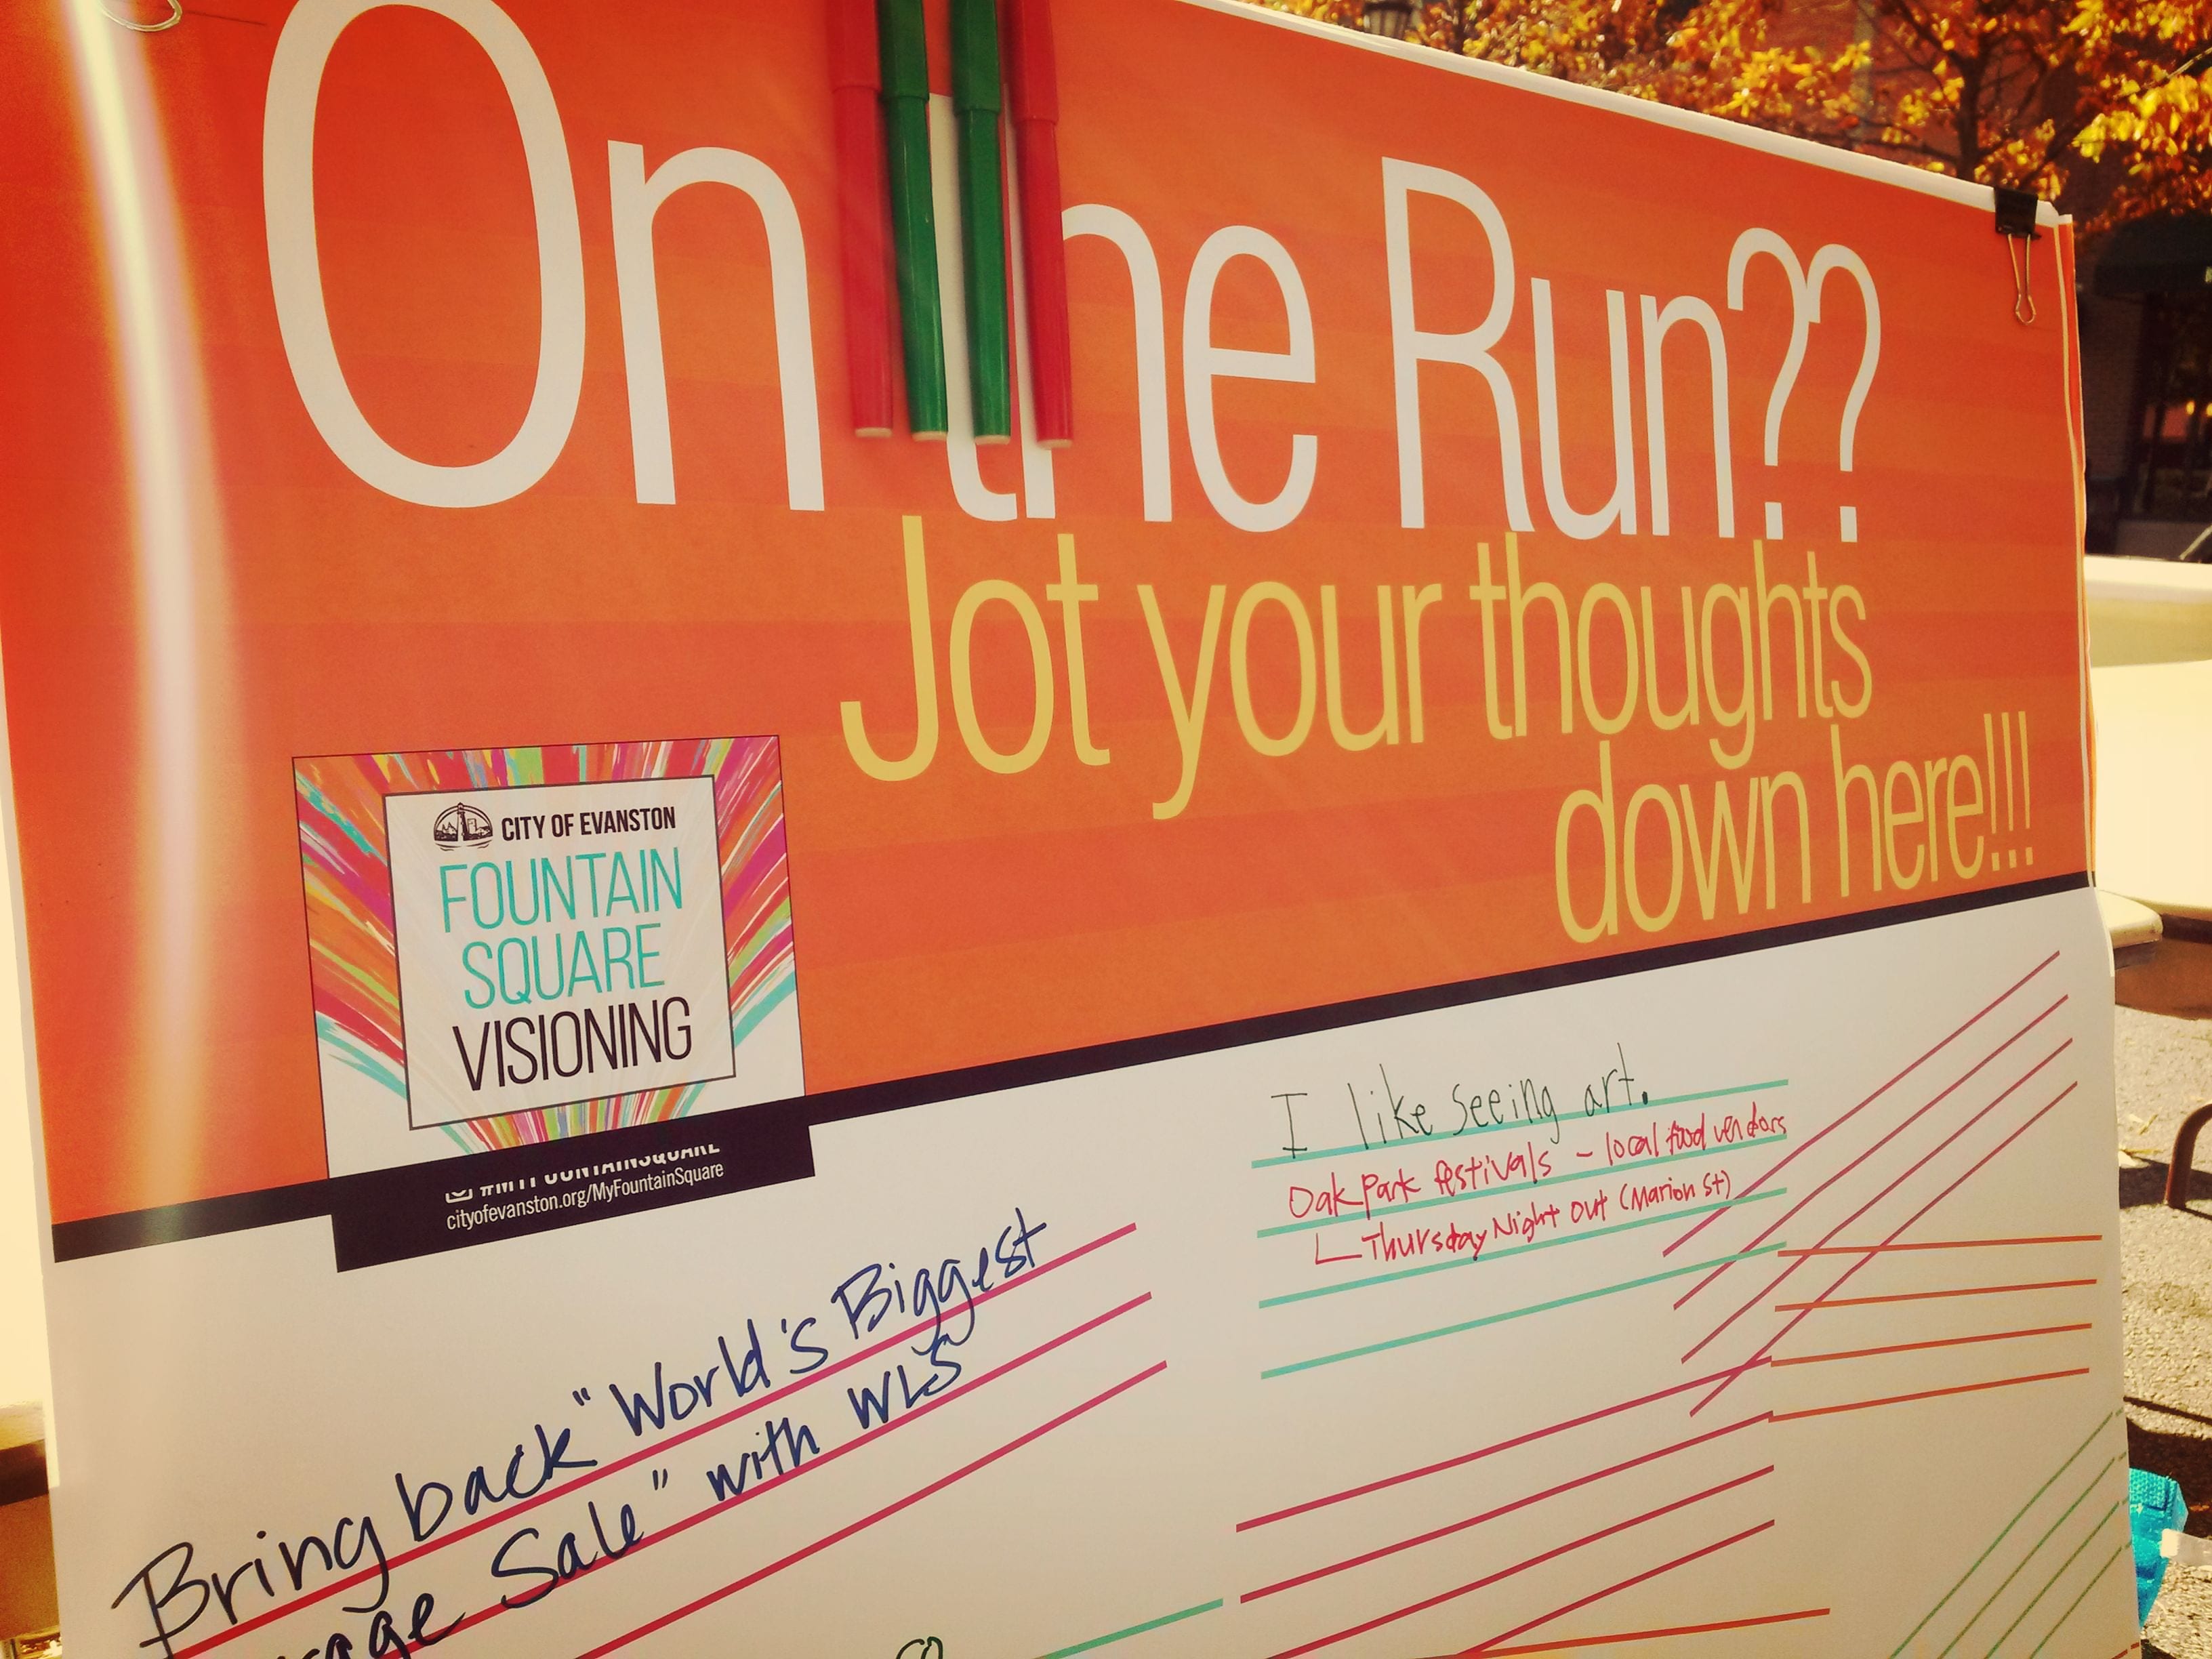 On the Run??
Jot your thoughts
down here!!!
CITY OF EVANSTON
FOUNTAIN
SQUARE
VISIONING
#MYFOUNTAINSQUARE
cityofevanston.org/MyFountainSquare
I like seeing art.
Oak Park festivals - local food vendors
Thursday Night Out (Marion St)
Bring back "World's Biggest
Sale" with WLS